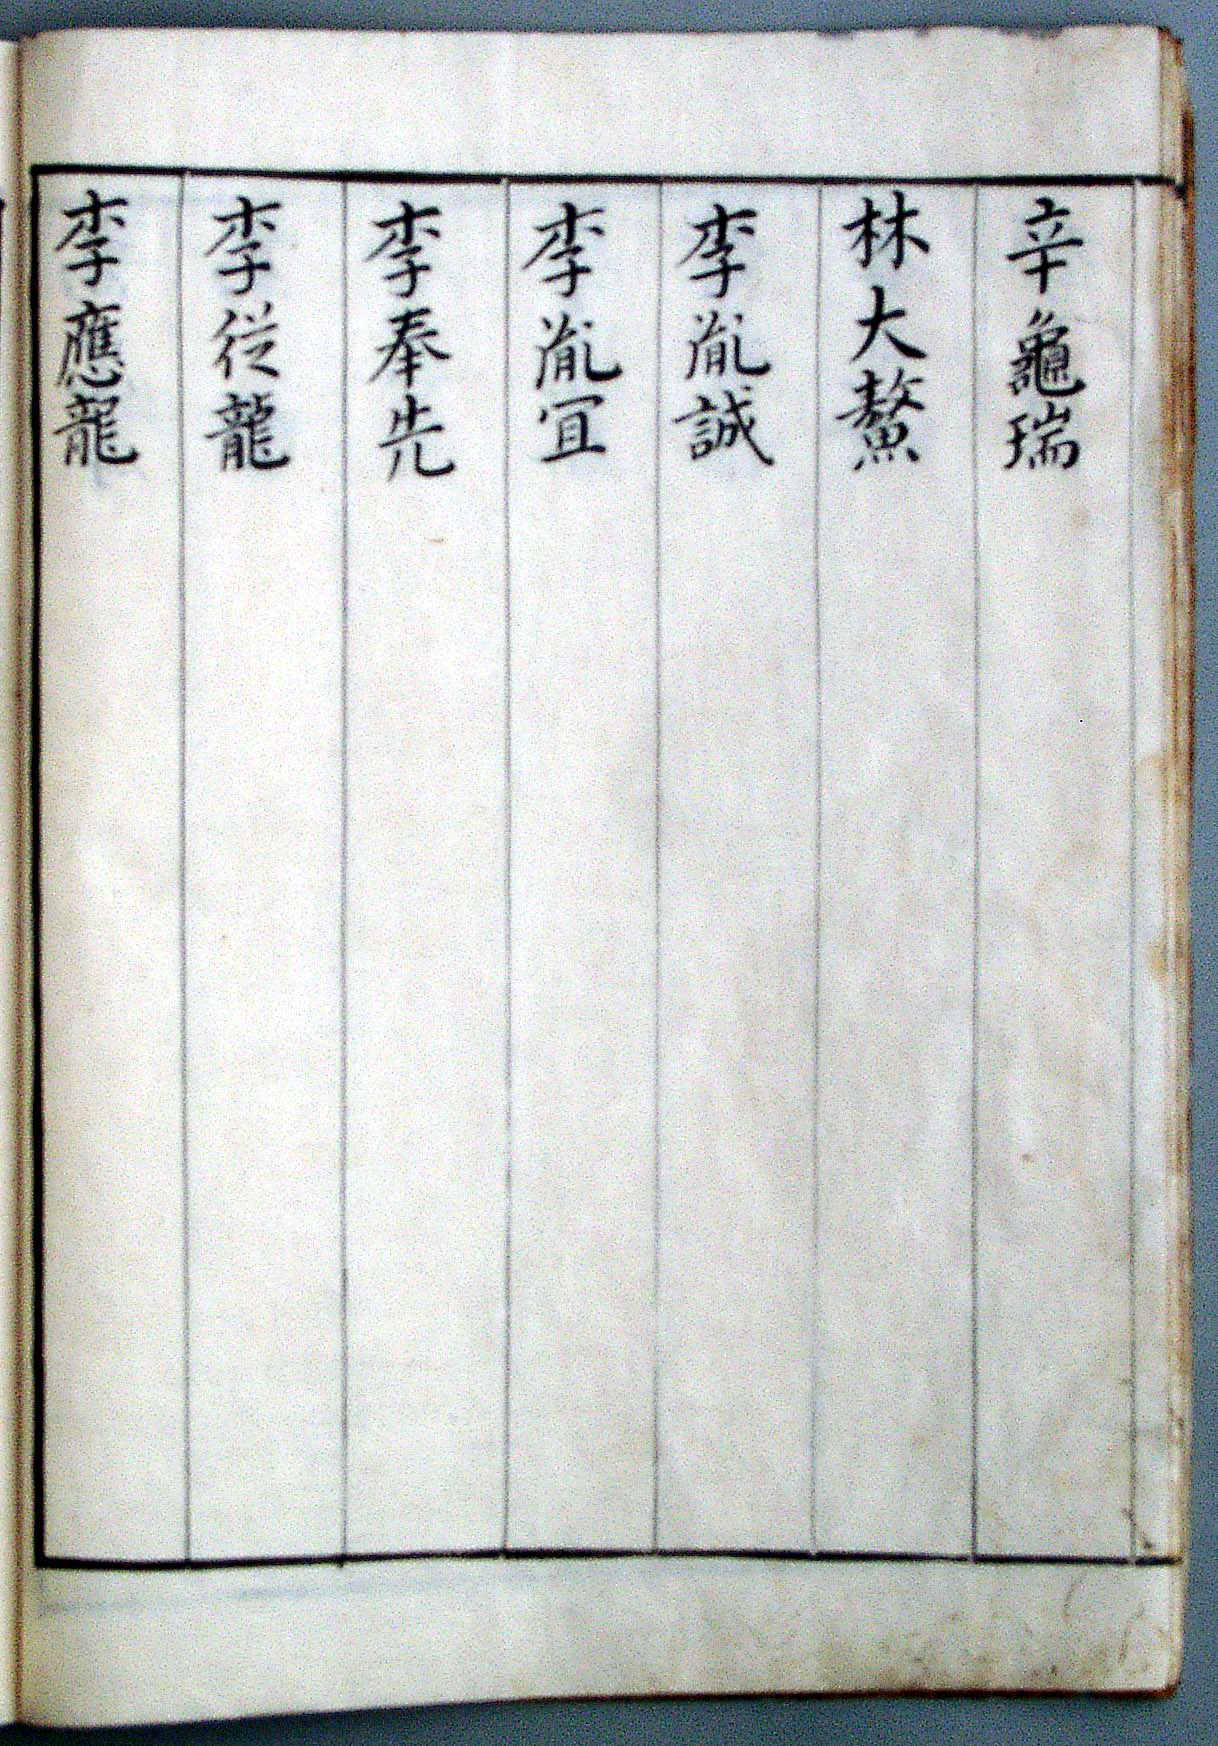 辛龜瑞
林大鰲
李胤誠
李胤冝
李奉先
李從龍
李應龍